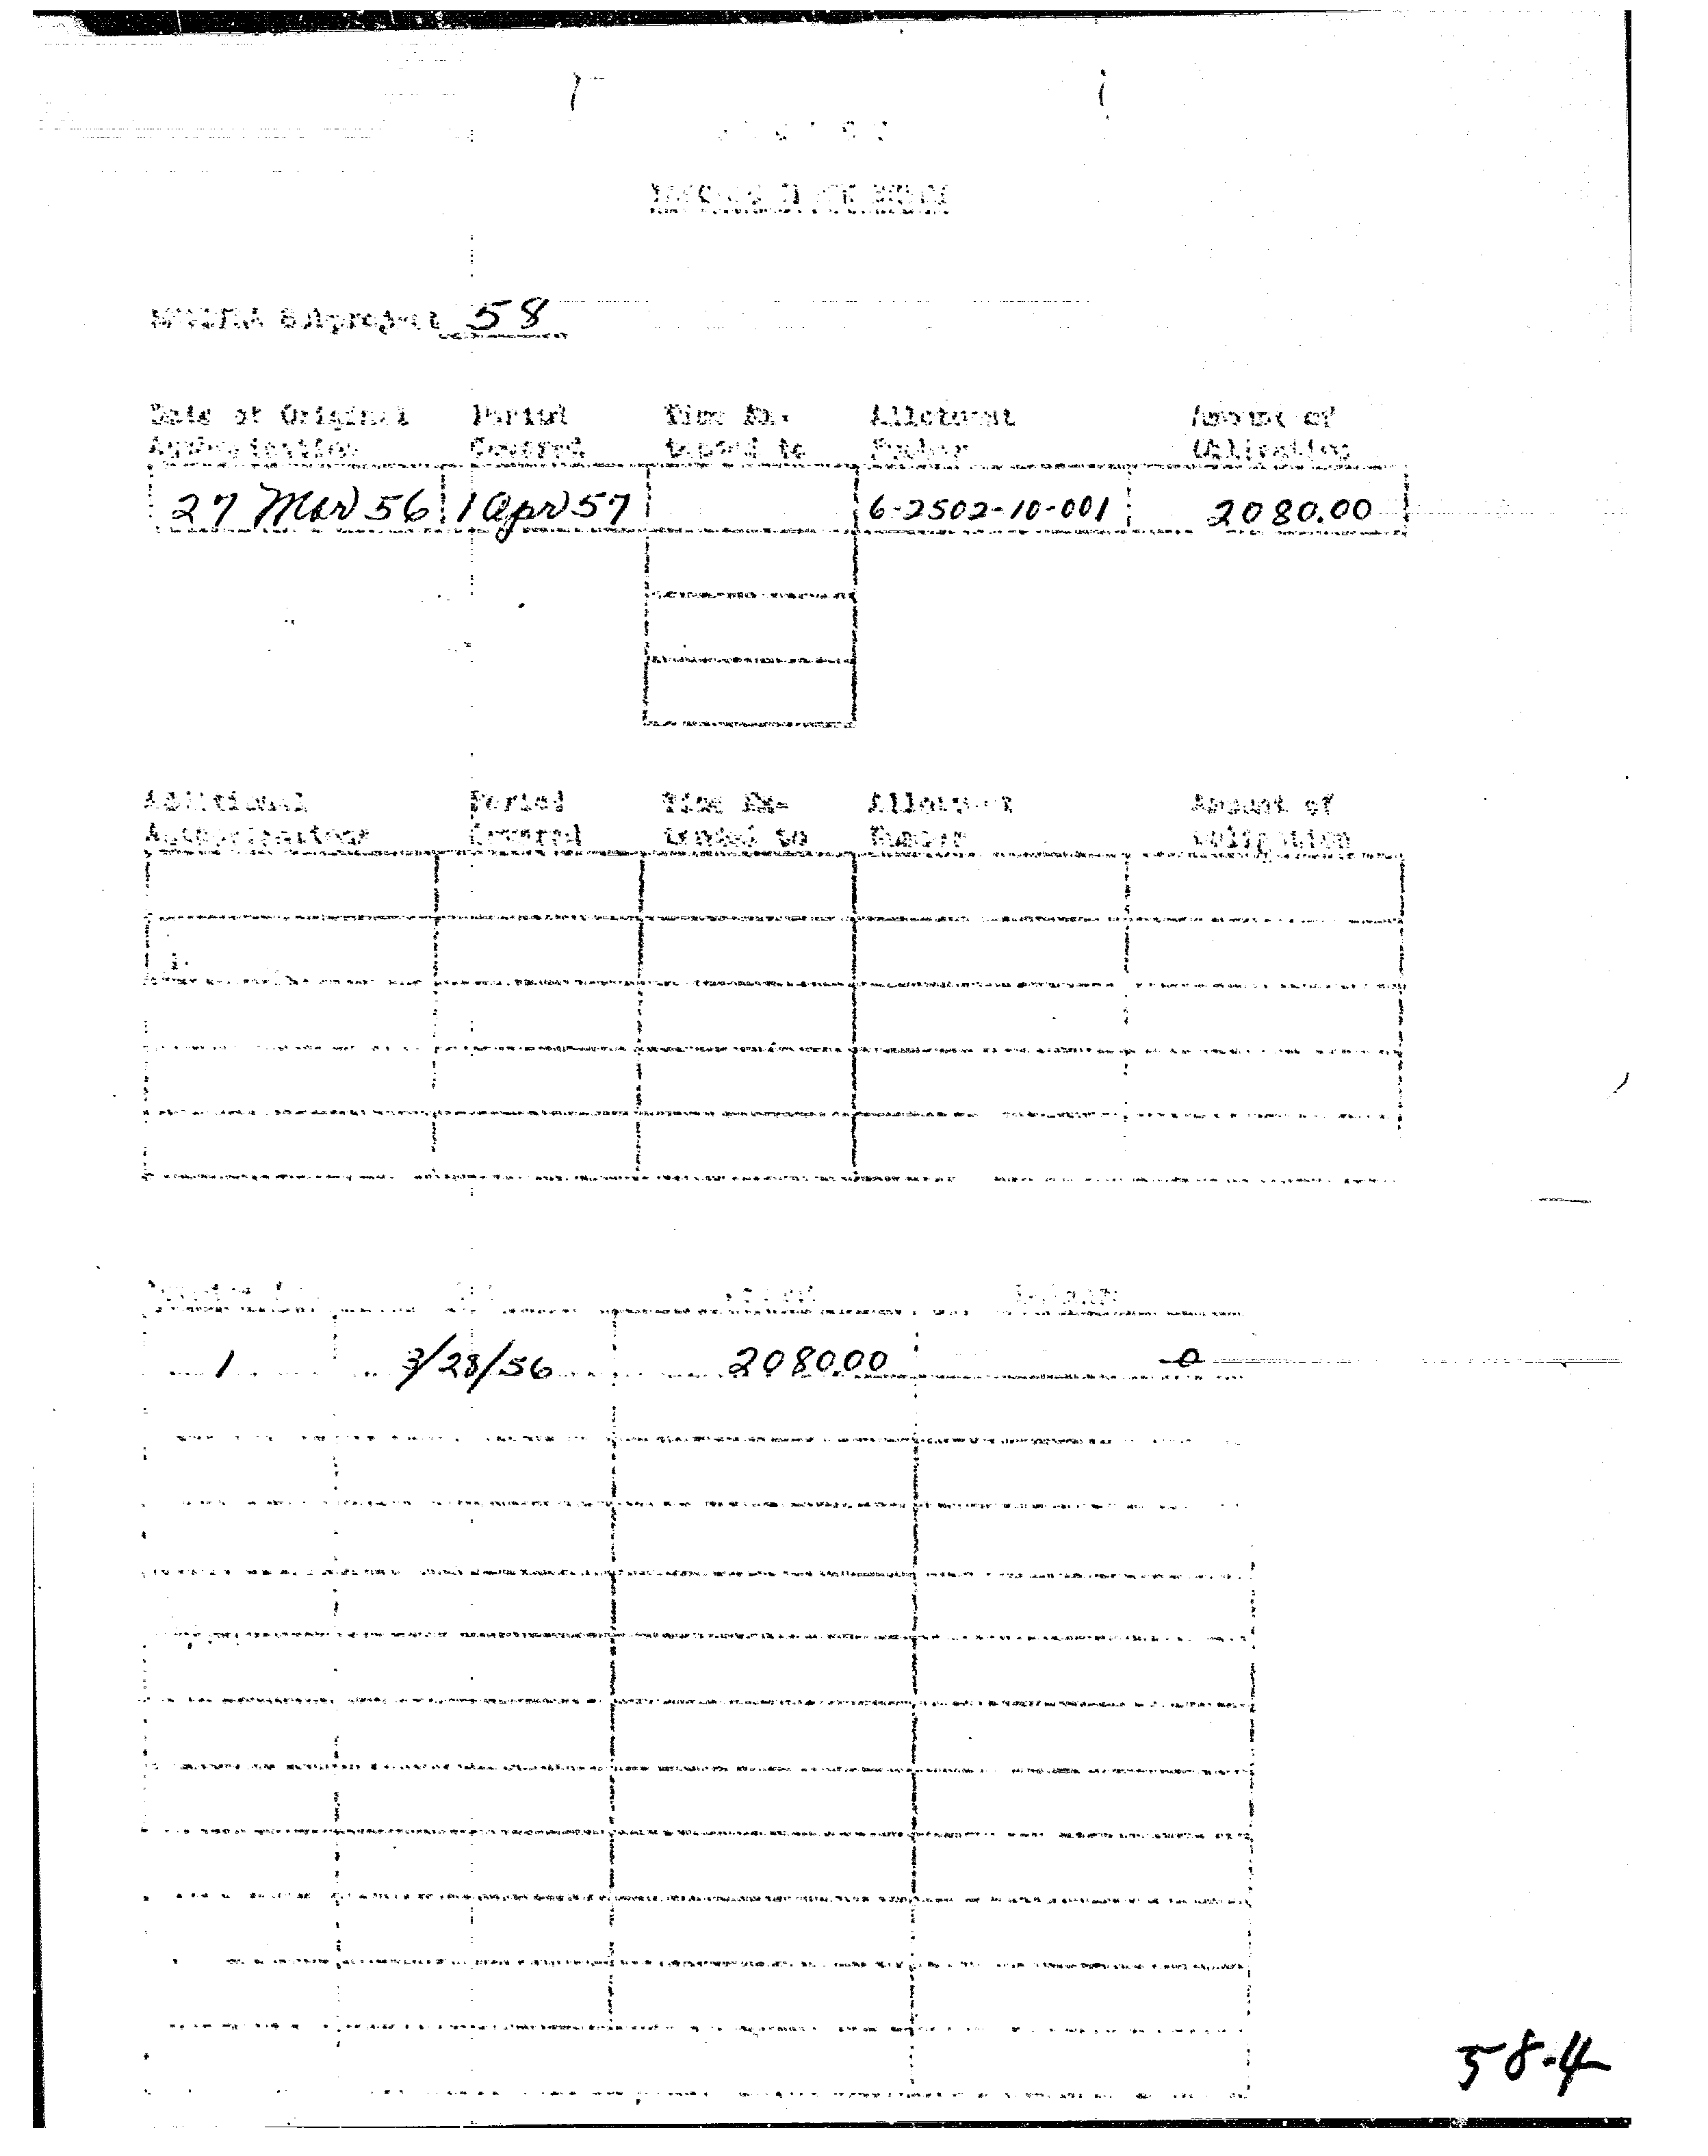 MKULTRA Subproject 58
Date of Original Period Time Ex- Allotment Amount of
Authorization Covered tended to Number Obligation
27 Mar 56 1 Apr 57 6-2502-10-001 2080.00
Additional Period Time Ex- Allotment Amount of
Authorizations Covered tended to Number Obligation
1 3/28/56 2080.00 -0-
58-4